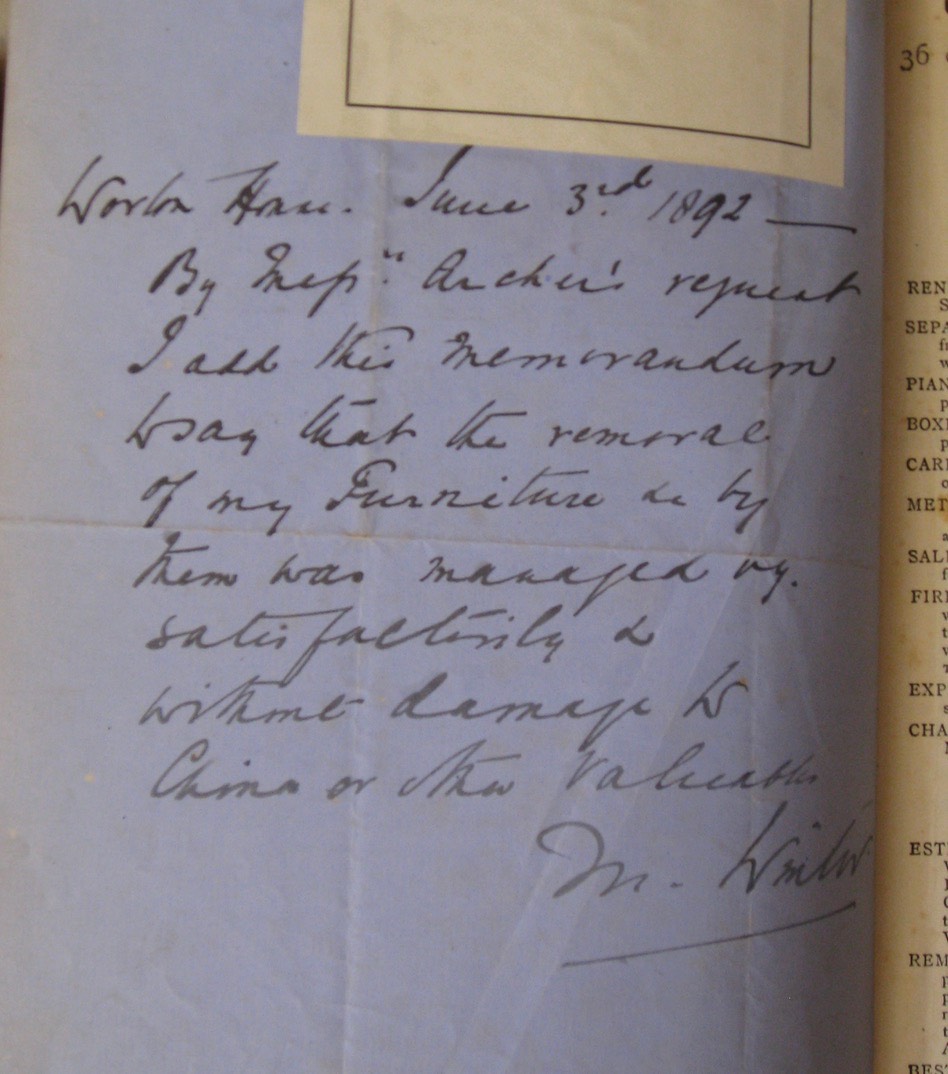 Worton House. June 3rd. 1892 —
By Messrs. Archer's request
I add this Memorandum
to say that the removal
of my Furniture &c by
them was managed vy.
satisfactorily &
without damage to
China or other Valuables
M.
36
REN
S
SEPA
f
w
PIAN
p
BOXE
p
CAR
c
MET
a
SAL
f
FIR
v
t
v
EXP
s
CHA
EST
REM
p
p
r
t
A
BES